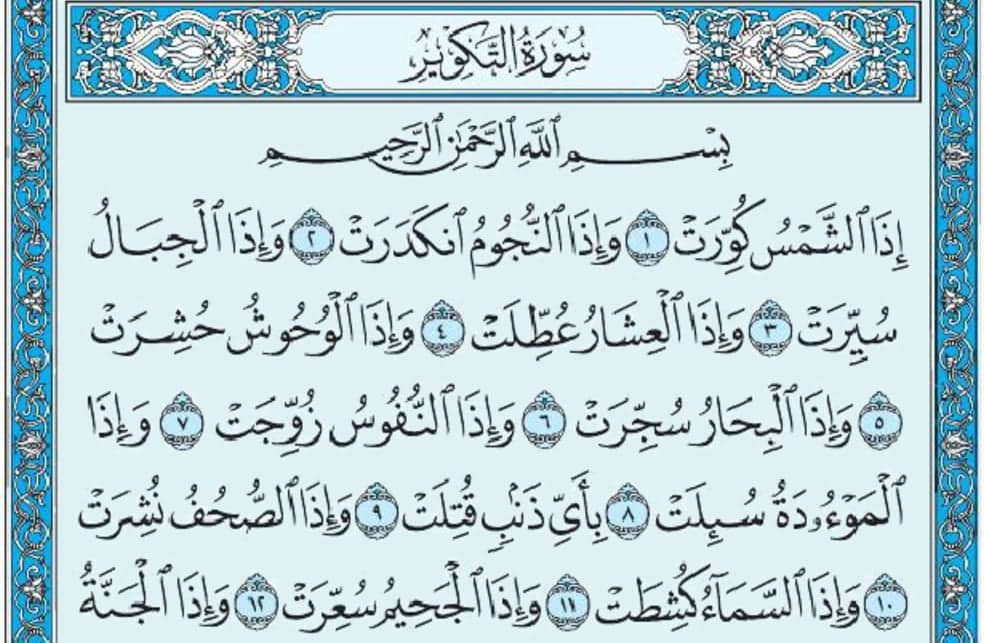 سُورَةُ التَّكْوِيرِ
بِسْمِ ٱللَّهِ ٱلرَّحْمَٰنِ ٱلرَّحِيمِ
إِذَا ٱلشَّمْسُ كُوِّرَتْ ١ وَإِذَا ٱلنُّجُومُ ٱنكَدَرَتْ ٢ وَإِذَا ٱلْجِبَالُ
سُيِّرَتْ ٣ وَإِذَا ٱلْعِشَارُ عُطِّلَتْ ٤ وَإِذَا ٱلْوُحُوشُ حُشِرَتْ
٥ وَإِذَا ٱلْبِحَارُ سُجِّرَتْ ٦ وَإِذَا ٱلنُّفُوسُ زُوِّجَتْ ٧ وَإِذَا
ٱلْمَوْءُۥدَةُ سُئِلَتْ ٨ بِأَىِّ ذَنۢبٍ قُتِلَتْ ٩ وَإِذَا ٱلصُّحُفُ نُشِرَتْ
١٠ وَإِذَا ٱلسَّمَآءُ كُشِطَتْ ١١ وَإِذَا ٱلْجَحِيمُ سُعِّرَتْ ١٢ وَإِذَا ٱلْجَنَّةُ